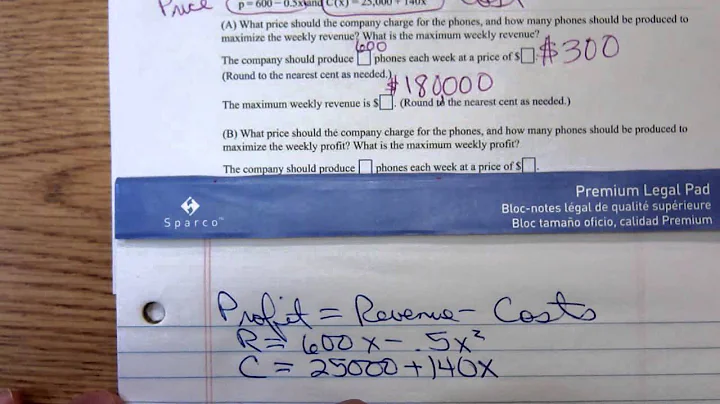 Price p = 600 − 0.5x and C(x) = 25,000 + 140x
(A) What price should the company charge for the phones, and how many phones should be produced to
maximize the weekly revenue? What is the maximum weekly revenue?
600
The company should produce □ phones each week at a price of $□. $300
(Round to the nearest cent as needed.)
$180000
The maximum weekly revenue is $□. (Round to the nearest cent as needed.)
(B) What price should the company charge for the phones, and how many phones should be produced to
maximize the weekly profit? What is the maximum weekly profit?
The company should produce □ phones each week at a price of $□.
Premium Legal Pad
Sparco™
Bloc-notes légal de qualité supérieure
Bloc tamaño oficio, calidad Premium
Profit = Revenue - Costs
R = 600x - .5x²
C = 25000 + 140x